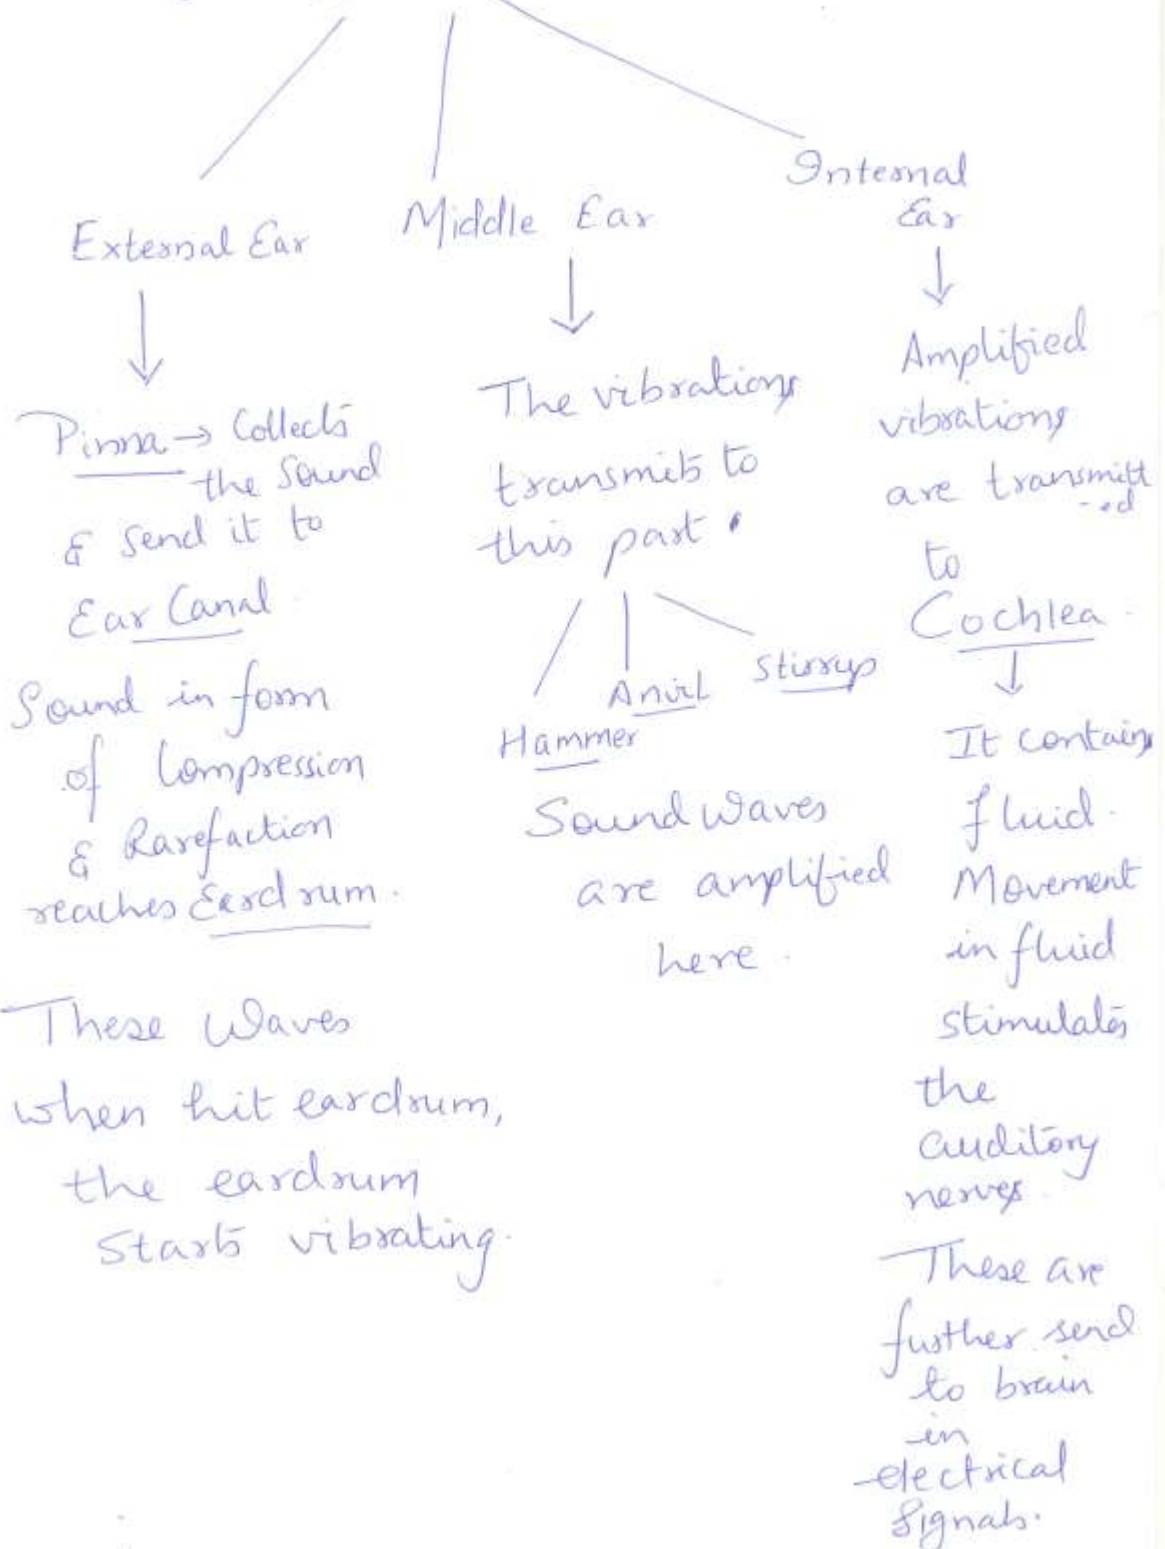 External Ear
Pinna → Collects
the Sound
& Send it to
Ear Canal.
Sound in form
of Compression
& Rarefaction
reaches Eardrum.
These Waves
when hit eardrum,
the eardrum
Starts vibrating.
Middle Ear
The vibrations
transmits to
this part.
Hammer
Anvil
Stirrup
Sound Waves
are amplified
here.
Internal
Ear
Amplified
vibrations
are transmitt
-ed
to
Cochlea.
It contains
fluid.
Movement
in fluid
stimulates
the
auditory
nerves.
These are
further send
to brain
in
electrical
Signals.